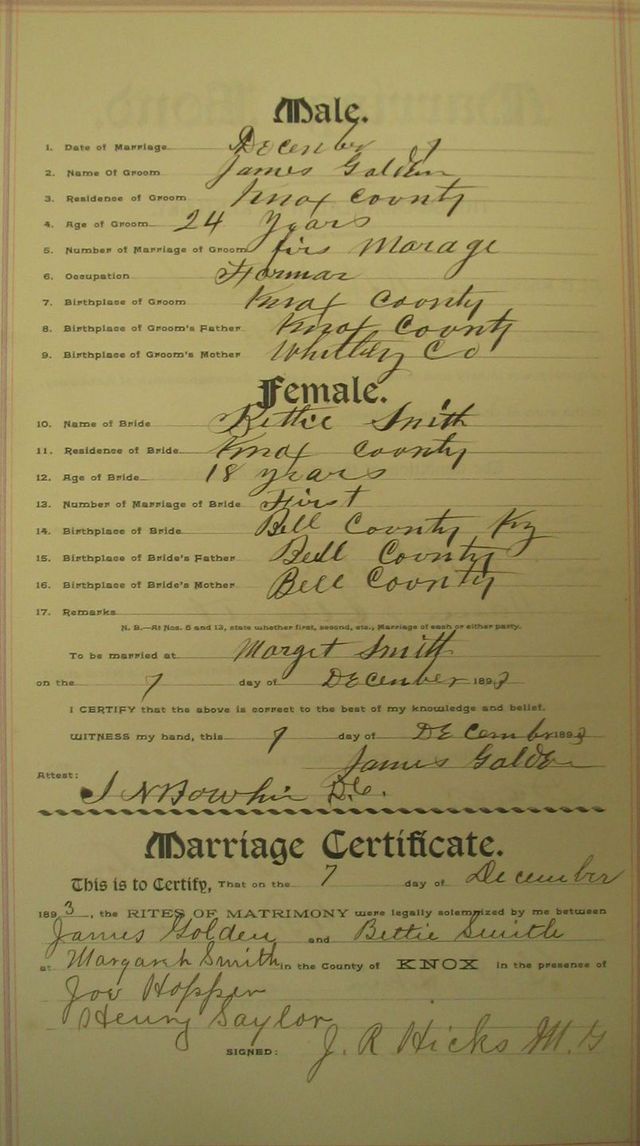 Male.
1. Date of Marriage December 7
2. Name Of Groom James Golden
3. Residence of Groom Knox County
4. Age of Groom 24 Years
5. Number of Marriage of Groom firs Marage
6. Occupation Formar
7. Birthplace of Groom Knox County
8. Birthplace of Groom's Father Knox County
9. Birthplace of Groom's Mother Whitley Co
Female.
10. Name of Bride Bettie Smith
11. Residence of Bride Knox County
12. Age of Bride 18 years
13. Number of Marriage of Bride First
14. Birthplace of Bride Bell County Ky
15. Birthplace of Bride's Father Bell County
16. Birthplace of Bride's Mother Bell County
17. Remarks
N. B.—At Nos. 5 and 13, state whether first, second, etc., Marriage of each or either party.
To be married at Marget Smith
on the 7 day of December 1893
I CERTIFY that the above is correct to the best of my knowledge and belief.
WITNESS my hand, this 7 day of DEcembr 1893
James Golden
Attest:
J N D.C.
Marriage Certificate.
This is to Certify, That on the 7 day of December
1893, the RITES OF MATRIMONY were legally solemnized by me between
James Golden and Bettie Smith
at Margaret Smith in the County of KNOX in the presence of
Joe Hopper
Henry Saylor
SIGNED: J. R Hicks M. G